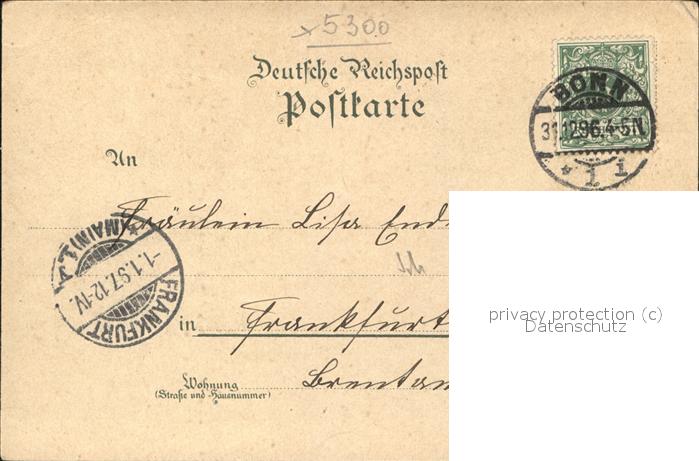 5300
Deutsche Reichspost
Postkarte
BONN
31.12.96.4-5N
* 1 i
An
Fräulein Lisa End
FRANKFURT (MAIN) 1. *
-1.1.97.12-1V.
in Frankfurt
Wohnung
(Straße und Hausnummer)
Brentan
privacy protection (c)
Datenschutz